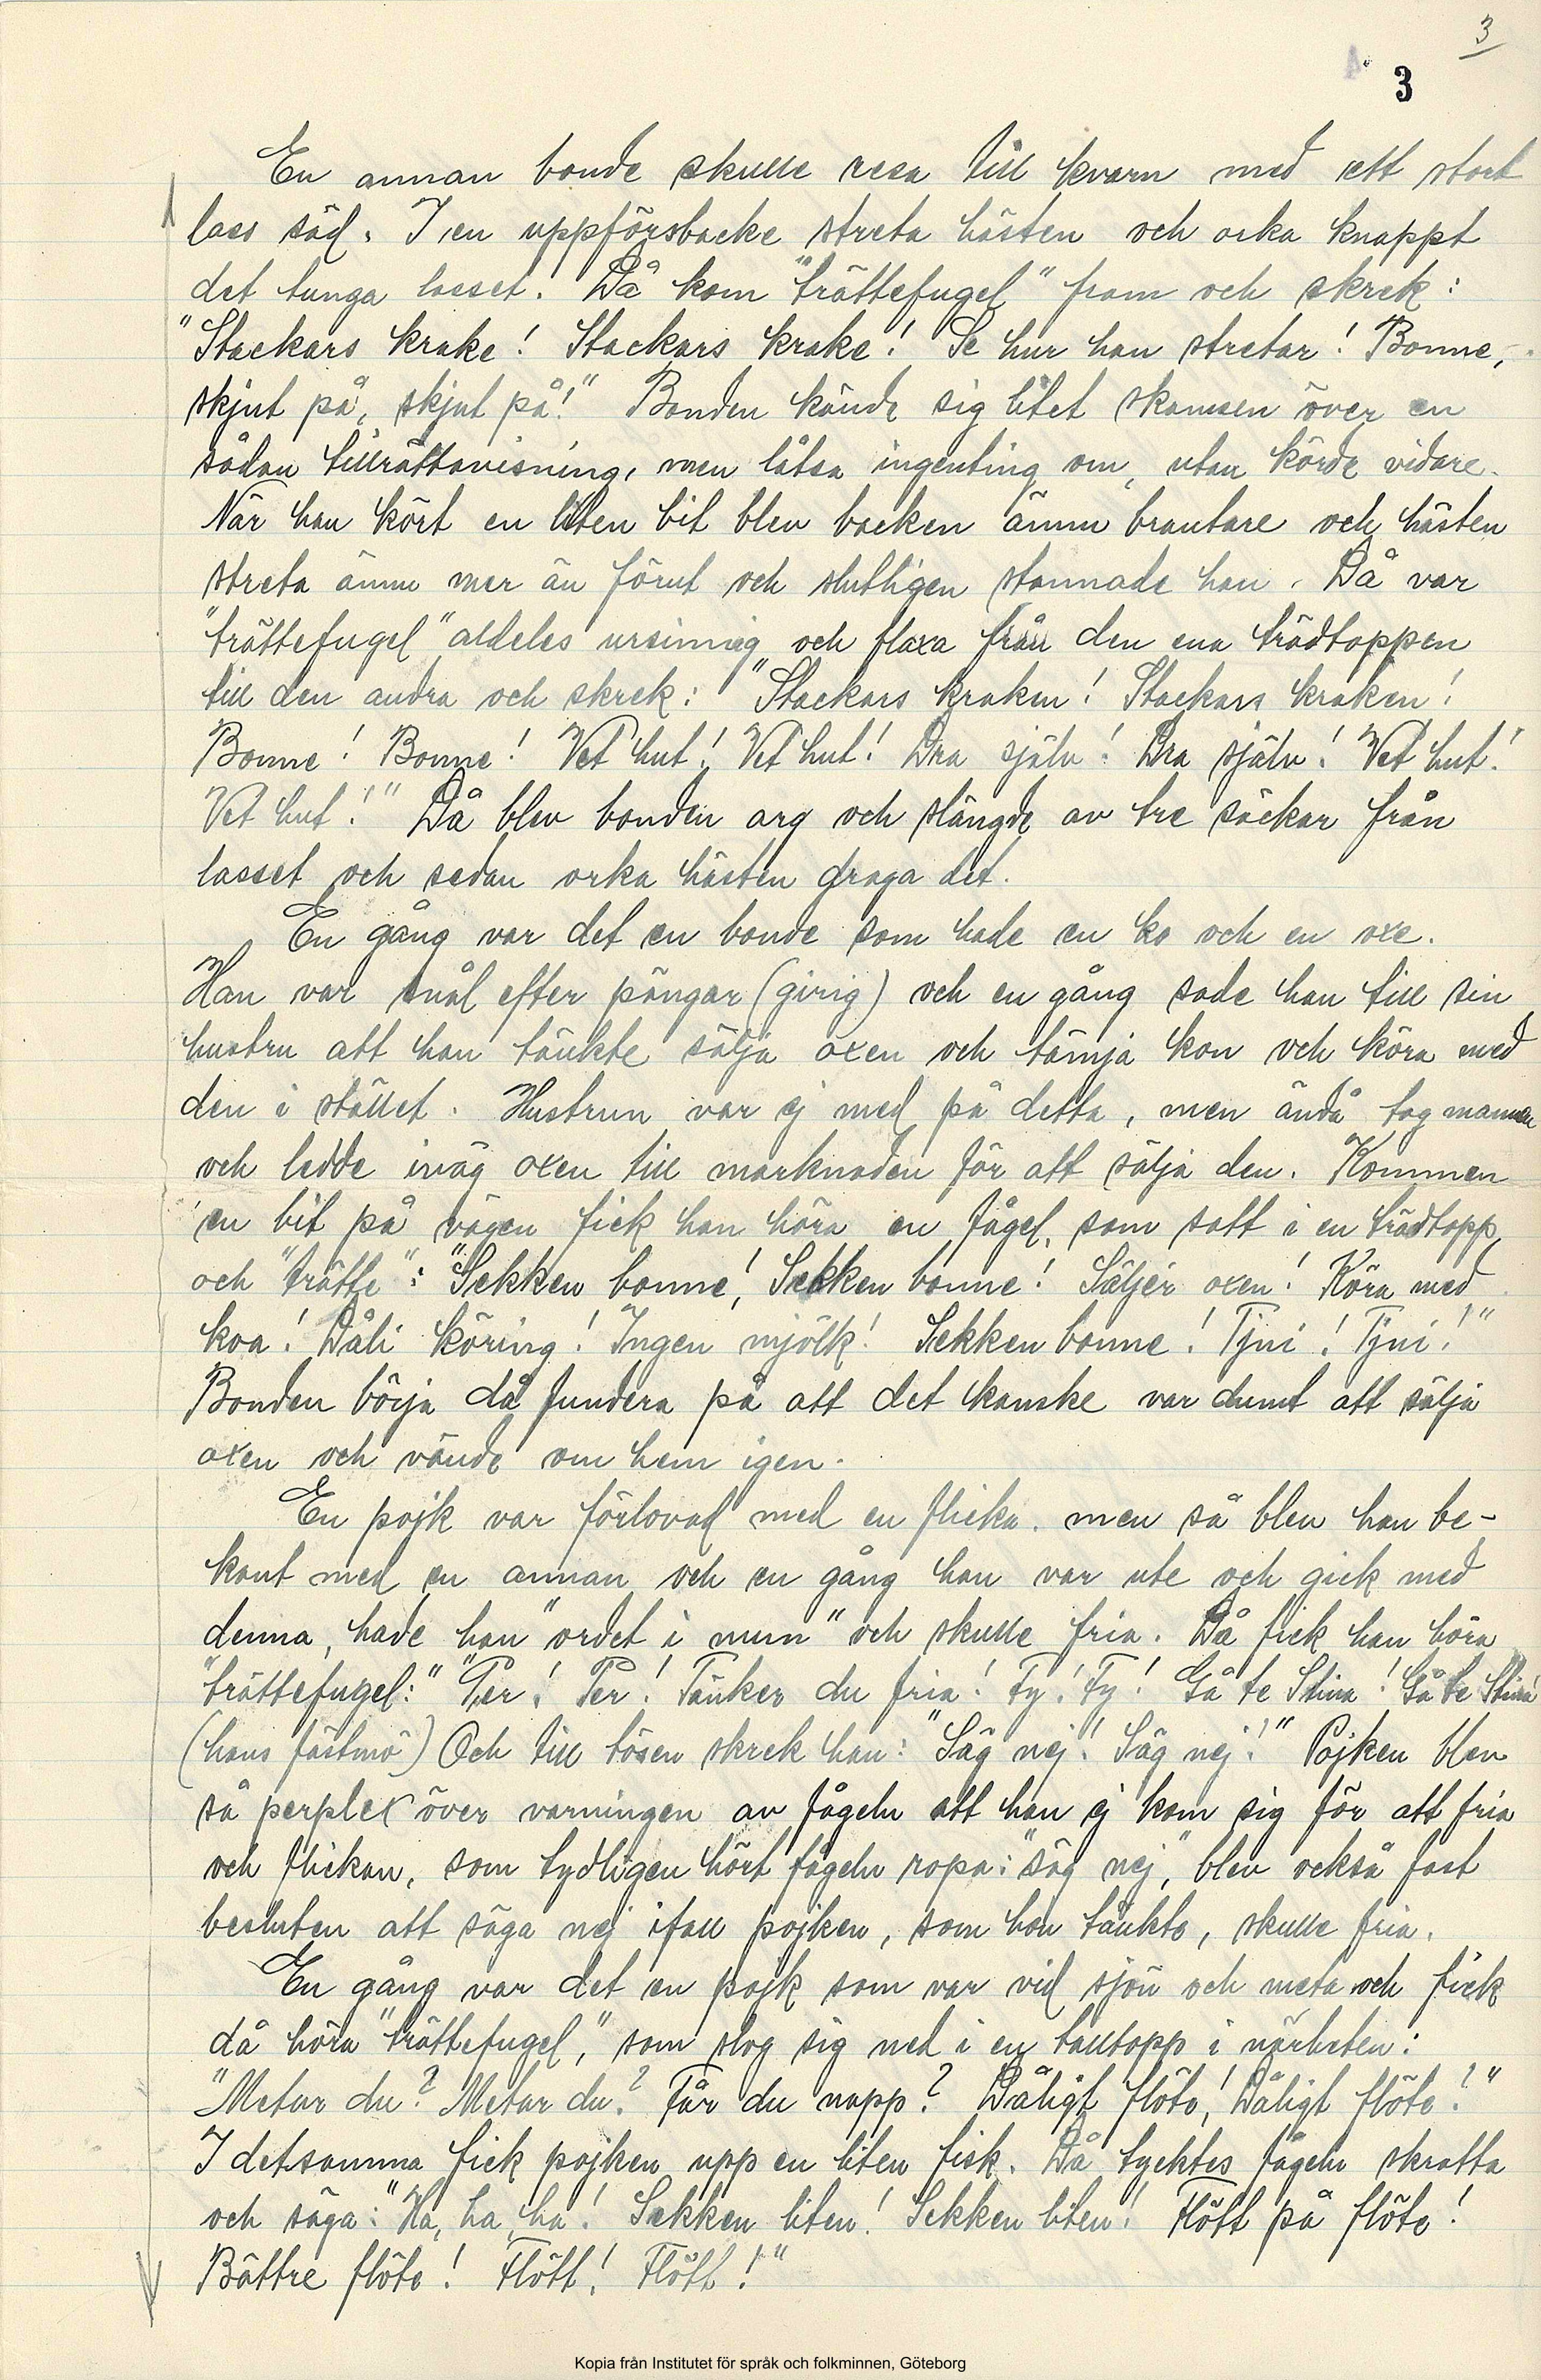 3
3
En annan bonde skulle resa till kvarn med ett stort
lass säd. I en uppförsbacke streta hästen och orka knappt
det tunga lasset. Då kom "trättefugel" fram och skrek:
"Stackars krake! Stackars krake! Se hur han stretar! Bonne,
skjut på, skjut på!" Bonden kände sig litet skamsen över en
sådan tillrättavisning, men låtsa ingenting om, utan körde vidare.
När han kört en liten bit blev backen ännu brantare och hästen
streta ännu mer än förut och slutligen stannade han. Då var
"trättefugel" alldeles ursinnig och flaxa från den ena trädtoppen
till den andra och skrek: "Stackars kraken! Stackars kraken!
Bonne! Bonne! Vet hut! Vet hut! Dra själv! Dra själv! Vet hut!
Vet hut!" Då blev bonden arg och slängde av tre säckar från
lasset och sedan orka hästen draga det.
En gång var det en bonde som hade en ko och en oxe.
Han var snål efter pängar (girig) och en gång sade han till sin
hustru att han tänkte sälja oxen och tämja kon och köra med
den i stället. Hustrun var ej med på detta, men ändå tog mannen
och ledde iväg oxen till marknaden för att sälja den. Kommen
en bit på vägen fick han höra en fågel, som satt i en trädtopp
och "trätte": "Sekken bonne! Sekken bonne! Säljer oxen! Köra med
koa! Dåli köring! Ingen mjölk! Sekken bonne! Tjni! Tjni!"
Bonden börja då fundera på att det kanske var dumt att sälja
oxen och vände om hem igen.
En pojk var förlovad med en flicka. men så blev han be-
kant med en annan och en gång han var ute och gick med
denna, hade han "ordet i mun" och skulle fria. Då fick han höra
"trättefugel:" "Per! Per! Tänker du fria! Fy! Fy! Gå te Stina! Gå te Stina
(hans fästmö) Och till tösen skrek han: "Säg nej! Säg nej!" Pojken blev
så perplex över varningen av fågeln att han ej kom sig för att fria
och flickan, som tydligen hört fågeln ropa: "säg nej", blev också fast
besluten att säga nej ifall pojken, som hon tänkte, skulle fria.
En gång var det en pojk som var vid sjön och meta och fick
då höra "trättefugel", som slog sig ned i en talltopp i närheten:
"Metar du? Metar du? Får du napp? Dåligt flöte! Dåligt flöte!"
I detsamma fick pojken upp en liten fisk. Då tycktes fågeln skratta
och säga: "Ha, ha, ha! Sekken liten! Sekken liten! Flött på flöte!
Bättre flöte! Flött! Flött!"
Kopia från Institutet för språk och folkminnen, Göteborg